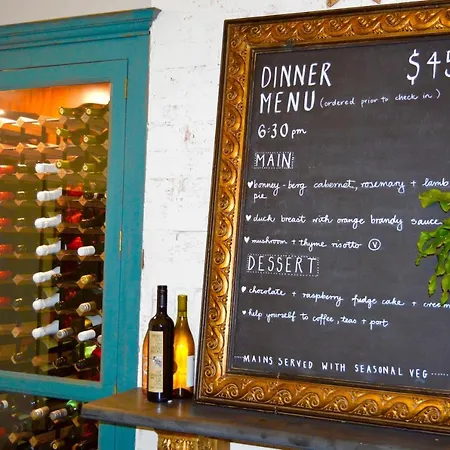 DINNER $45
MENU (ordered prior to check in)
6:30 pm
MAIN
♥ bonney-berg cabernet, rosemary + lamb
pie
♥ duck breast with orange brandy sauce
♥ mushroom + thyme risotto Ⓥ
DESSERT
♥ chocolate + raspberry fudge cake +
♥ help yourself to coffee, teas + port
MAINS SERVED WITH SEASONAL VEG